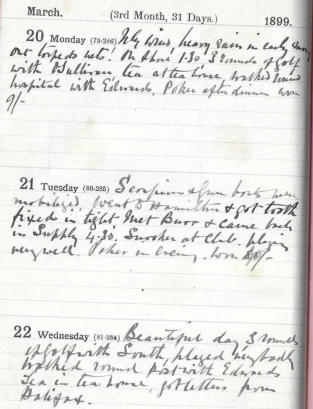 March. (3rd Month, 31 Days.) 1899.
20 Monday (79-286) Nly wind, heavy rain in early morng
out torpedo nets. On shore 1.30, 3 rounds of golf
with O'Sullivan tea at tea house, walked round
hospital with Edwards, Poker after dinner won
9/-
21 Tuesday (80-285) Scorpion & gun boats were
mobilized, went to Hamilton & got tooth
fixed in tight, met Burr & came back
in Supply 4.30. Snooker at Club, playing
very well. Poker in evening. won
22 Wednesday (81-284) Beautiful day, 3 rounds
of golf with South, played very badly
walked round port with Edwards
Tea in tea house, got letters from
Halifax.